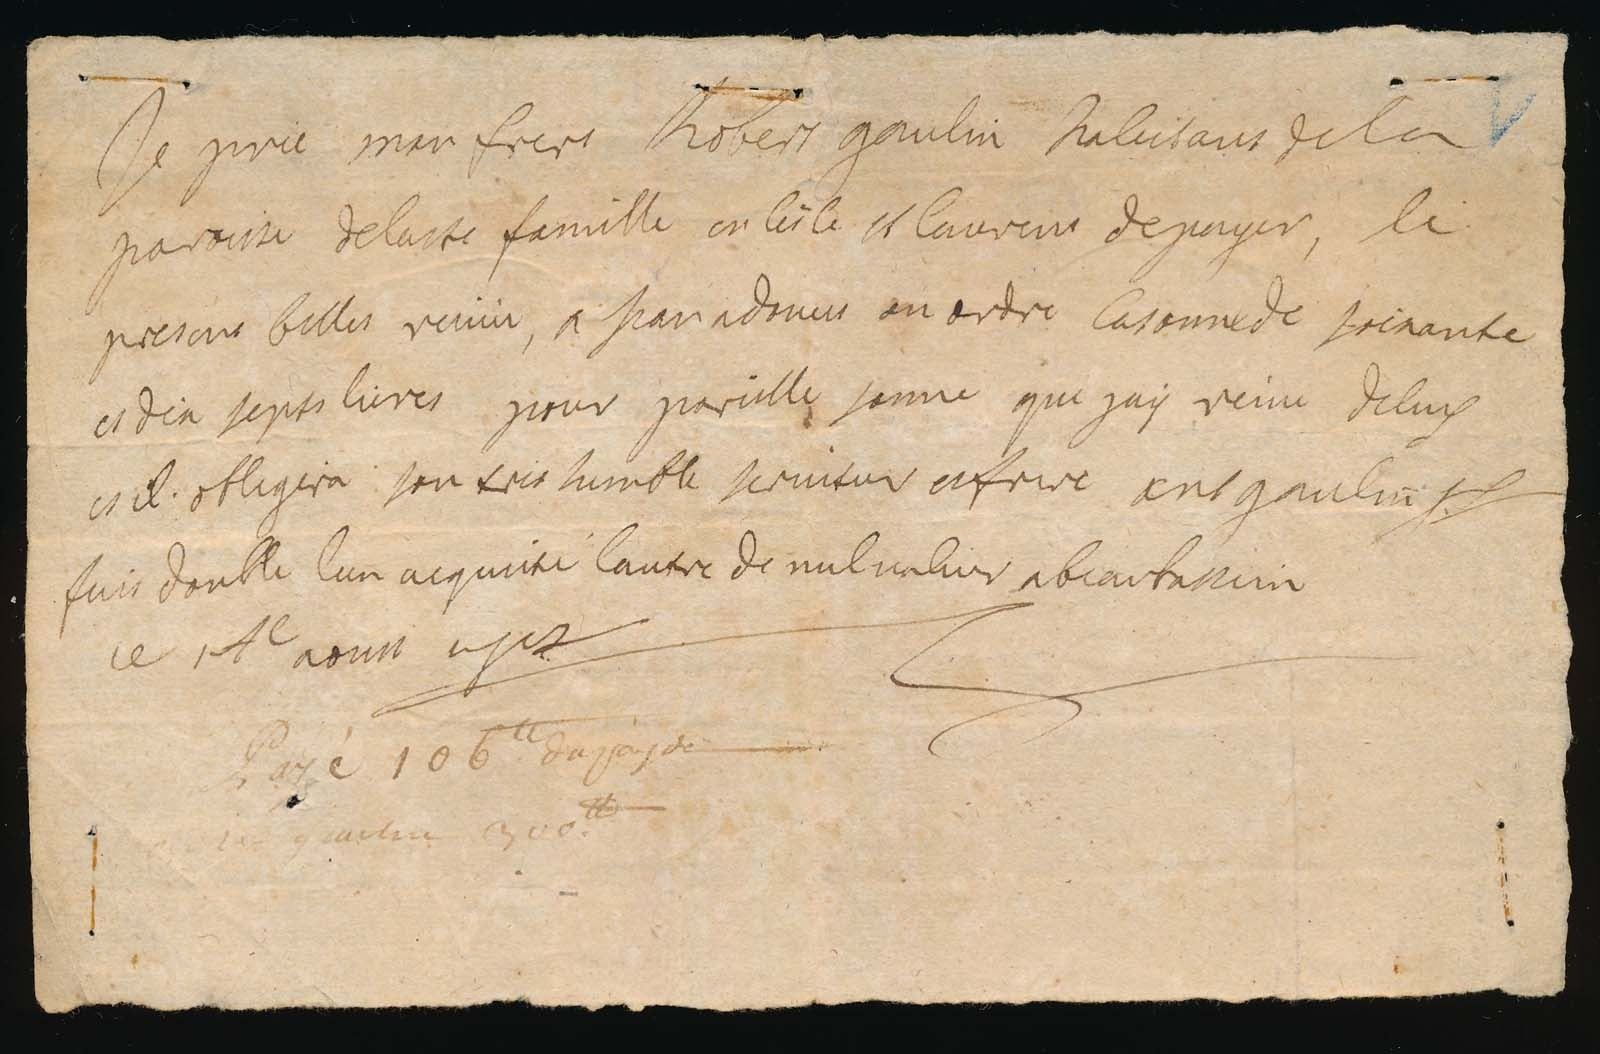 Je prie mon frere Robert gaulin habitant de la
paroisse de la ste famille en lisle st laurens de payer, le
present billet reiiu, a jean adouue ou ordre la somme de soixante
et dix septs livres pour pareille somme que jay reiiu de luy
et il obligera son tres humble serviteur et frere ant gaulin ptr
fais double lun acquitté lautre de nul valeur a beaubassin
ce 1 aoust
Payé 106tt du
300tt